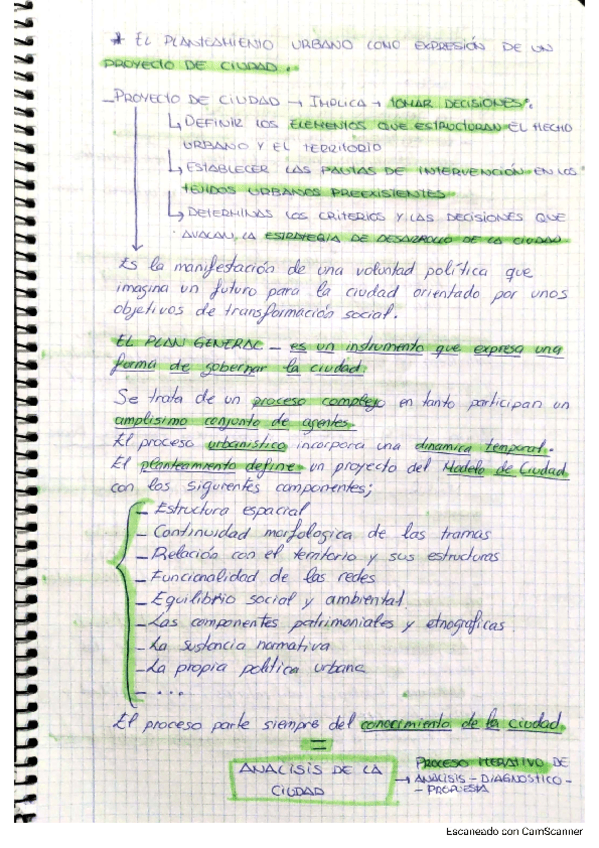 * EL PLANTEAMIENTO URBANO COMO EXPRESIÓN DE UN
PROYECTO DE CIUDAD.
- PROYECTO DE CIUDAD → IMPLICA → "TOMAR DECISIONES".
↳ DEFINIR LOS ELEMENTOS QUE ESTRUCTURAN EL HECHO
URBANO Y EL TERRITORIO
↳ ESTABLECER LAS PAUTAS DE INTERVENCIÓN EN LOS
TEJIDOS URBANOS PREEXISTENTES
↳ DETERMINAS LOS CRITERIOS Y LAS DECISIONES QUE
AVALAN LA ESTRATEGIA DE DESARROLLO DE LA CIUDAD
Es la manifestación de una voluntad política que
imagina un futuro para la ciudad orientado por unos
objetivos de transformación social.
EL PLAN GENERAL - es un instrumento que expresa una
forma de gobernar la ciudad.
Se trata de un proceso complejo en tanto participan un
amplísimo conjunto de agentes.
El proceso urbanístico incorpora una dinamica temporal.
El planteamiento define un proyecto del Modelo de Ciudad
con los siguientes componentes;
- Estructura espacial
- Continuidad morfologica de las tramas
- Relación con el territorio y sus estructuras
- Funcionalidad de las redes
- Equilibrio social y ambiental.
- Las componentes patrimoniales y etnograficas.
- La sustancia normativa
- La propia política urbana
- ...
El proceso parte siempre del conocimiento de la ciudad
=
ANALISIS DE LA
CIUDAD
→ PROCESO ITERATIVO DE
ANALISIS - DIAGNOSTICO -
- PROPUESTA
Escaneado con CamScanner